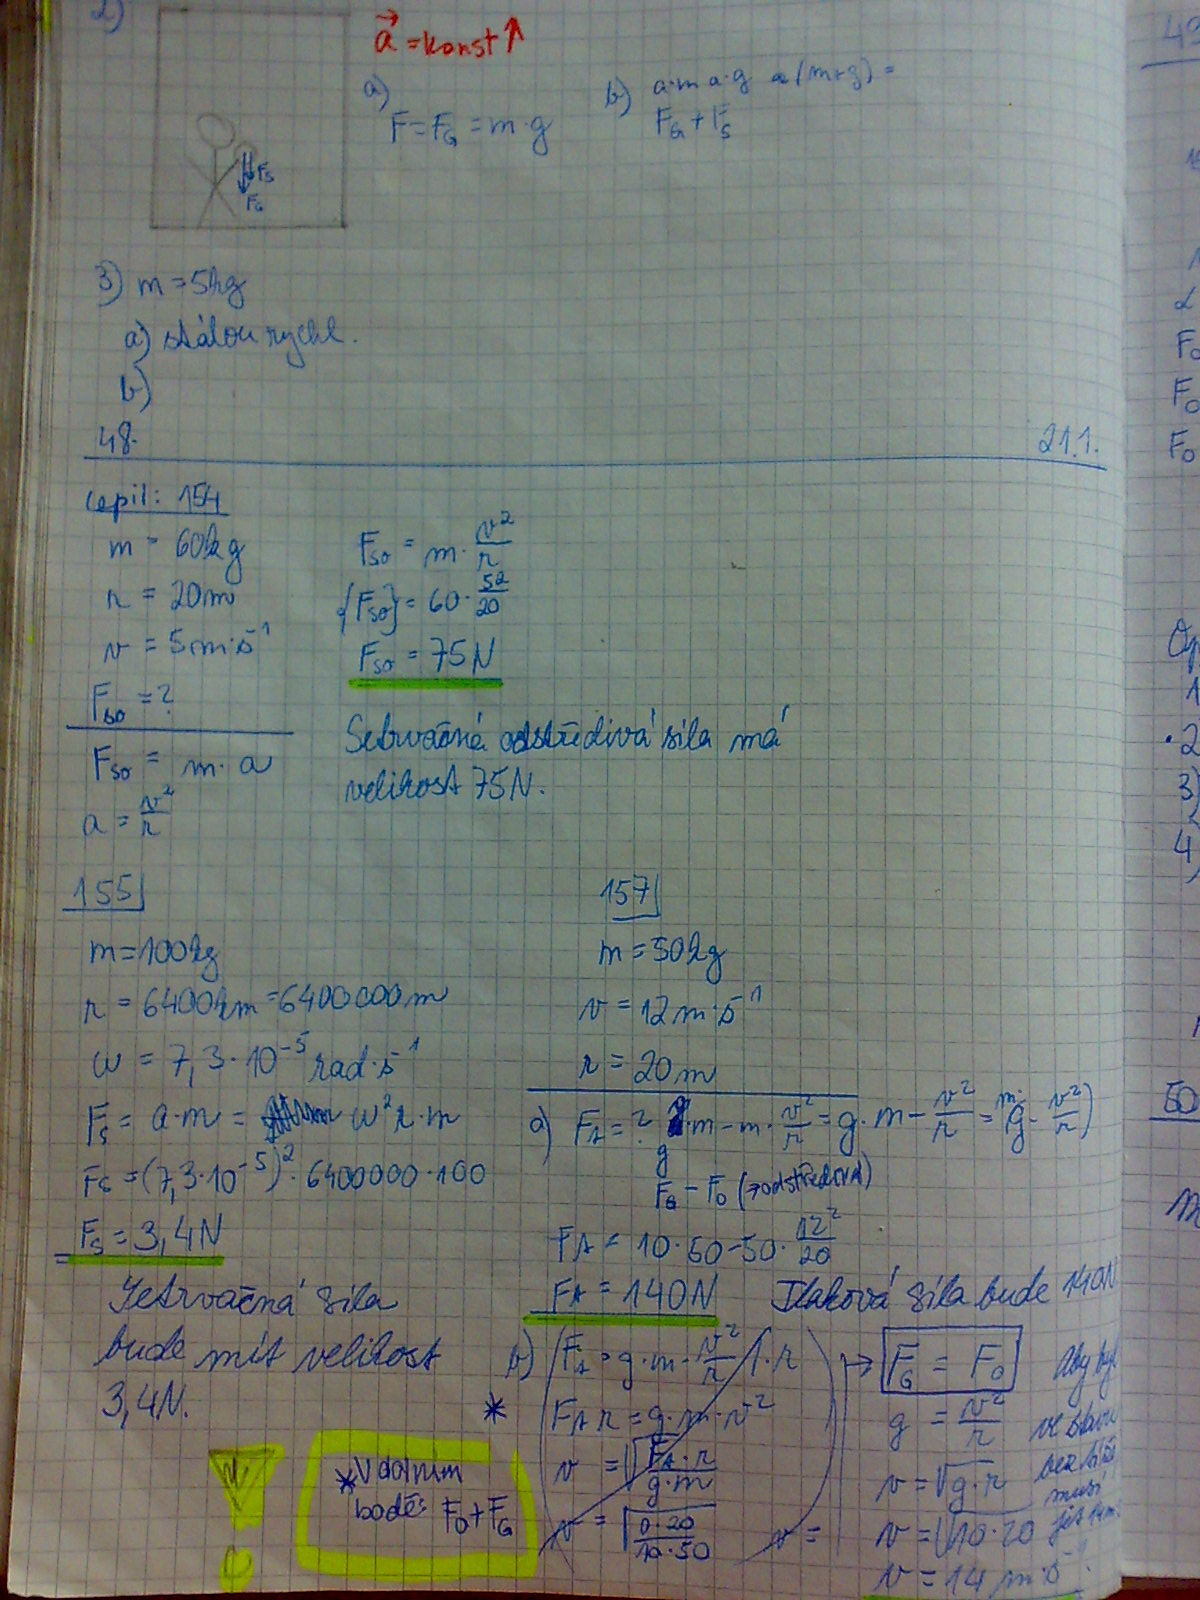 2)
a = konst ↑
a)
F = F_G = m·g
b) a·m a·g a(m+g) =
F_G + F_S
F_S
F_G
3) m = 5kg
a) stálou rychl.
b)
48.
21.1.
Lepil: 154
m = 60kg
r = 20m
v = 5m·s⁻¹
F_so = ?
F_so = m·a
a = v²/r
F_so = m · v²/r
{F_so} = 60 · 5²/20
F_so = 75N
Setrvačná odstředivá síla má
velikost 75N.
155
m = 100kg
r = 6400km = 6400000m
ω = 7,3·10⁻⁵ rad·s⁻¹
F_s = a·m = ω²r·m
F_s = (7,3·10⁻⁵)²·6400000·100
F_s = 3,4N
Setrvačná síla
bude mít velikost
3,4N.
157
m = 50kg
v = 12m·s⁻¹
r = 20m
a) F_A = ? g·m - m·v²/r = g·m - v²/r = m(g - v²/r)
F_G - F_O (→odstředivá)
F_A = 10·50-50·12²/20
F_A = 140N
Tlaková síla bude 140N
b) (F_A = g·m - v²/r /·r
F_A r = g·m·v²
v = √(F_A·r/g·m)
v = √(0·20/10·50)
v =
→ F_G = F_O
g = v²/r
v = √g·r
v = √10·20
v = 14m·s⁻¹
Aby byl
ve stavu
bez tíže
musí
jet 14m.
*
* V dolním
bodě: F_O + F_G
!
F_O
F_O
F_O
1
2
3)
4)
50